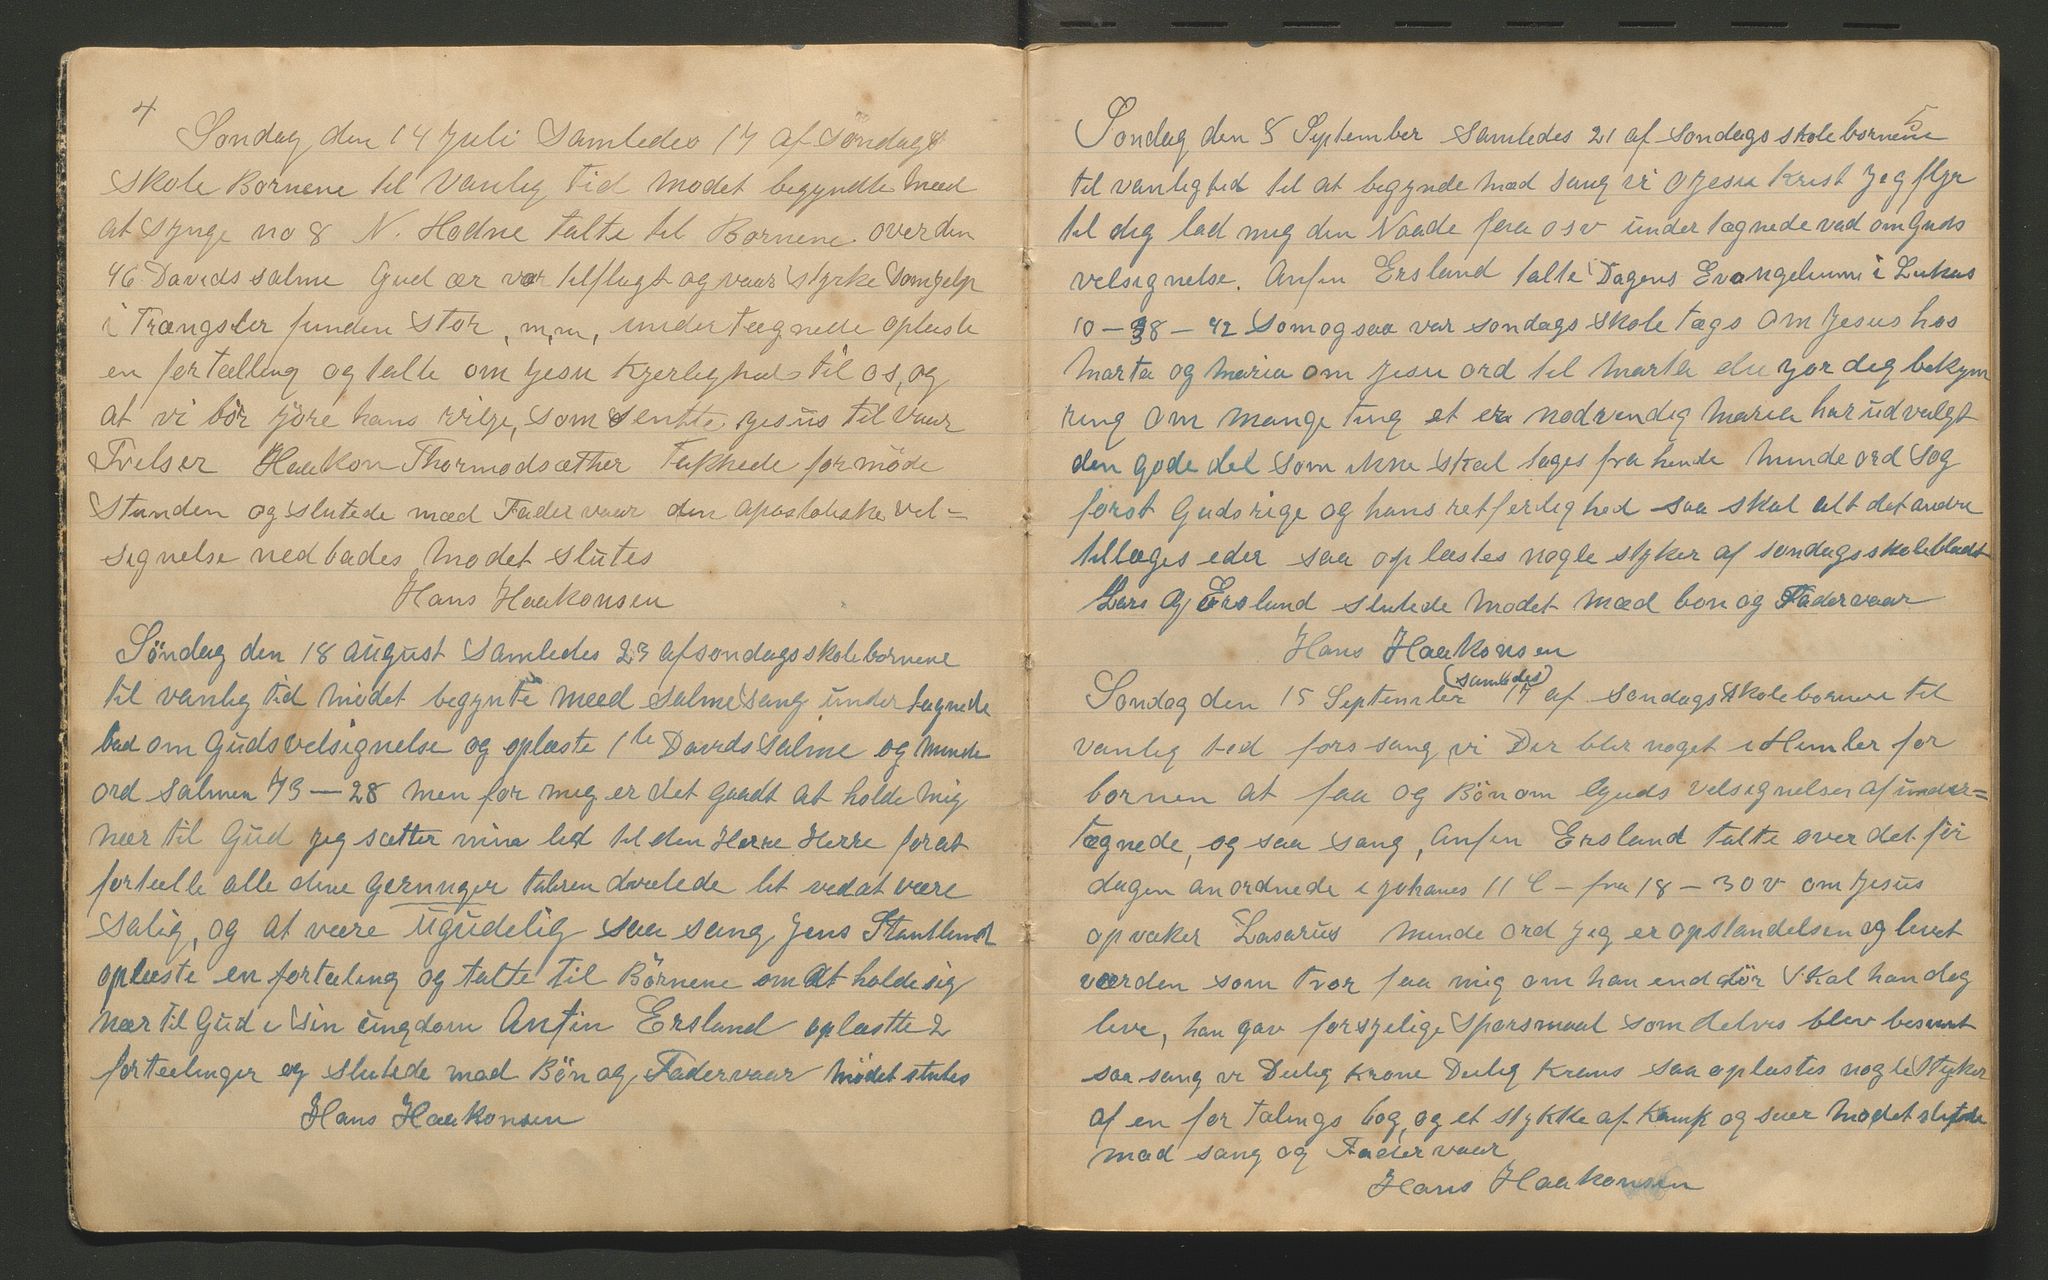 4
Søndag den 14 Juli Samledes 17 af Søndags
skole Bornene til Vanlig Tid Modet begyndte med
at synge no 8 N. Hodne talte til Bornene over den
46 Davids salme Gud er vor tilflugt og vaar styrke Som hjelp
i Trængsler funden stor, m,m, undertægnede oplæste
en fortælling og talte om Jesu Kjerlighed til os, og
at vi bör jöre hans vilje, som sentte Jesus til vaar
Frelser Haakon Thormodsæther Takkede for möde
stunden og slutede mæd Fader vaar den apostoliske vel-
signelse nedbades Modet slutes
Hans Haakonsen
Söndag den 18 August Samledes 23 af sondagsskolebornene
til vanlig tid mödet begynte mæd salmesang undertægnede
bad om Guds velsignelse og oplæste 1te Davids Salme og Minde
ord salmen 73 — 28 men for mig er det Gaadt at holde Mig
nær til Gud jeg sætter min lid til den Herre Herre for at
fortælle alle dine Gerninger talren dvælede lit ved at være
salig, og at være ugudelig saa sang Jens Stautland
oplæste en fortæling og talte til Börnene om at holde sig
nær til Gud i sin ungdom Anfin Ersland oplæstte 2
fortælinger og slutede mæd Bön og Fadervaar Mödet slutes
Hans Haakonsen
5
Sondag den 8 September Samledes 21 af sondagsskolebornene
til vanligtid til at begynde mæd sang vi O Jesu Krist Jeg flyr
til dig lad mig din Naade faa osv undertægnede bad om Guds
velsignelse. Anfin Ersland talte i Dagens Evangelium i Lukas
10 — 38 — 42 som ogsaa var sondags skole tægs om Jesus hos
Marta og Maria om Jesu ord til Marta du gjor dig bekym
ring om mange ting et er nodvendig Maria har udvalgt
den gode del som ikke skal tages fra hende Minde ord Søg
forst Guds rige og hans retferdighed saa skal alt det andre
tillæges eder saa oplæstes nogle styker af sondagsskolebladt
Lars Aj Ersland slutede Modet mæd bon og Fadervaar
Hans Haakonsen
(samledes)
Sondag den 15 September 17 af sondagsskolebornene til
vanlig tid fors sang vi Der blir noget i Himlen for
bornen at faa og Bön om Guds velsignelse af under=
tægnede, og saa sang, Anfin Ersland talte over det för
dagen anordnede i Johanes 11 C — fra 18 — 30 v om Jesus
opvæker Lasarus Minde ord Jeg er opstandelsen og livet
værden som tror paa mig om han end dör skal han dog
leve, han gav forsjelige sporsmaal som delves blev besvart
saa sang vi Deilig Krone Deilig Krans saa oplæstes nogle Styker
af en for talings bog, og et stykke af Kamp og seier Modet slutede
mæd sang og Fader vaar
Hans Haakonsen